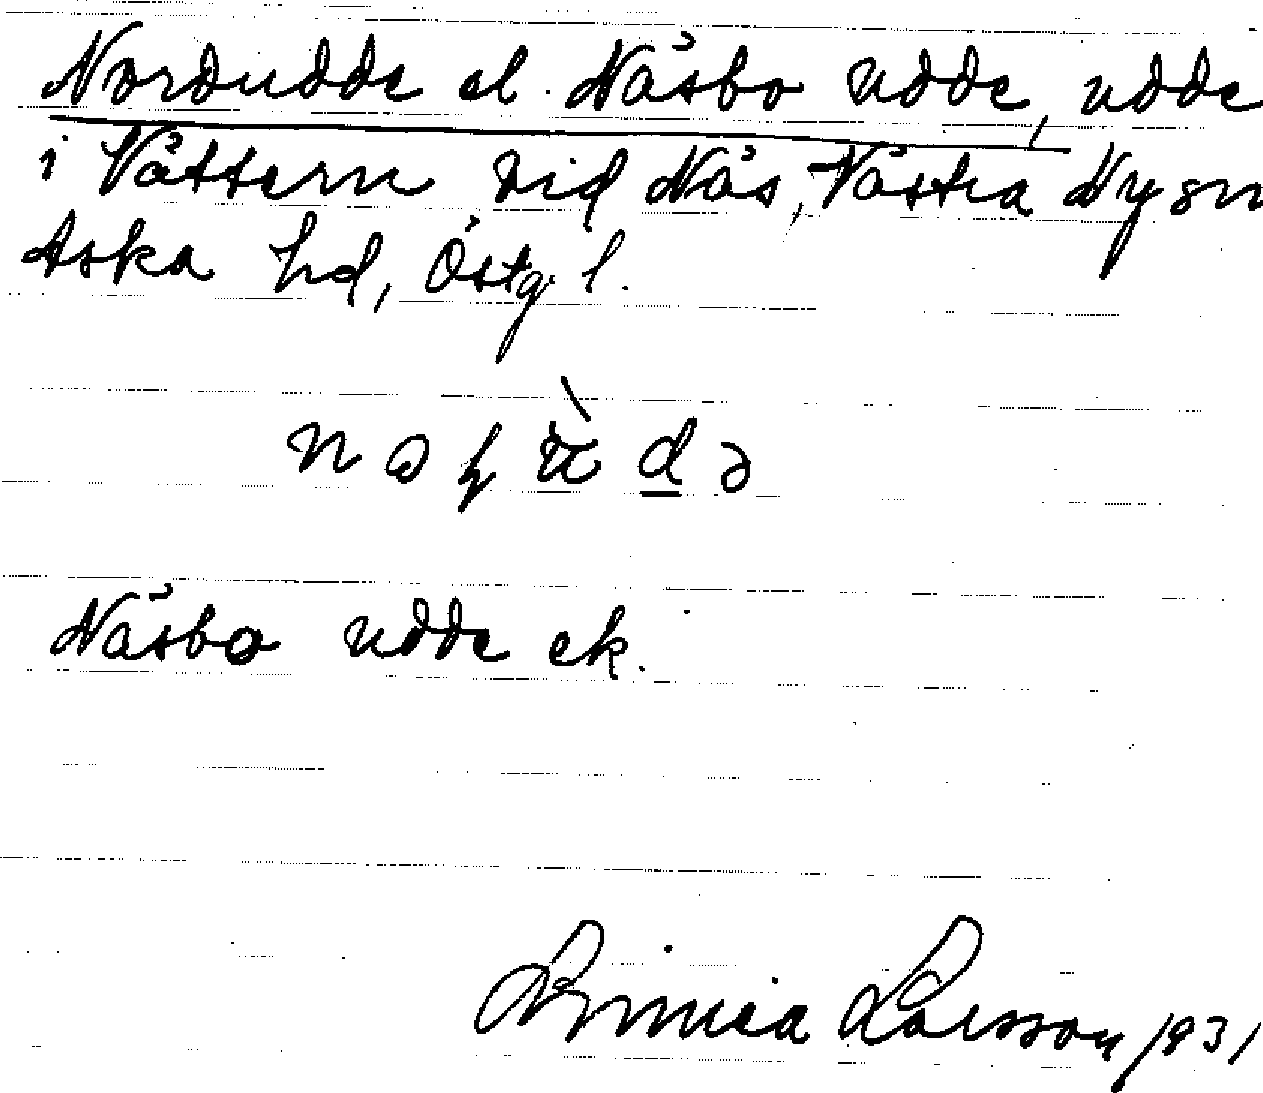 Nordudde el. Näsbo udde, udde
i Vättern vid Näs, Västra Ny sn
Aska hd, Östg l.
Näsbo udde ek.
Larsson 1931